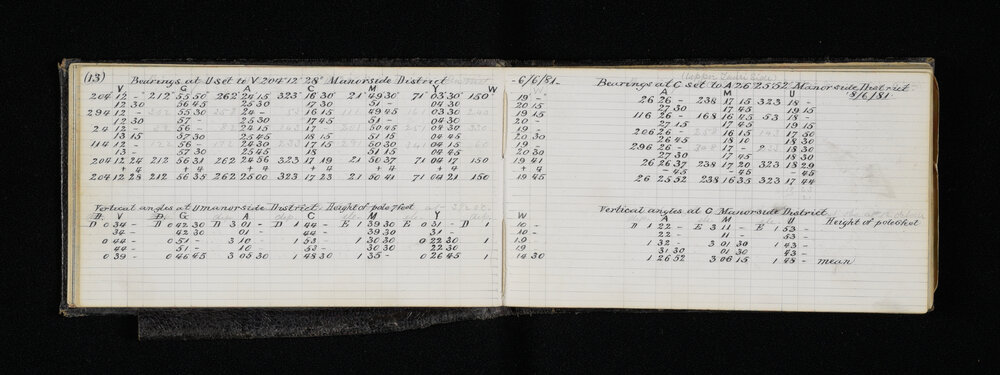 (13) Bearings at U set to V 204° 12' 28" Manorside District
V G A C M Y W
204 12 - 212° 55 50 262° 24 15 323° 16 30 21° 49 30 71° 03 30 150
12 30 56 45 25 30 17 30 51 - 04 30
12 30 57 - 25 30 17 45 51 - 04 30
13 15 57 30 25 45 18 15 51 15 04 45
13 - 57 30 25 45 18 51 15 04 45
204 12 24 212 56 31 262 24 56 323 17 19 21 50 37 71 04 17 150
+ 4 + 4 + 4 + 4 + 4 + 4
204 12 28 212 56 35 262 25 00 323 17 23 21 50 41 71 04 21 150
Vertical angles at U Manorside District. Height of pole 7 feet
D. V D. G A C M Y
D 0 34 - D 0 42 30 D 3 01 - D 1 44 - E 1 39 30 E 0 31 - D 1
34 - 42 30 01 - 44 - 39 30 31 -
0 44 - 0 51 - 3 10 1 53 - 1 30 30 0 22 30 1
44 - 51 - 10 53 - 30 30 22 30
0 39 - 0 46 45 3 05 30 1 48 30 1 35 - 0 26 45 1
-6/6/81-
19 -
20 15
19 15
20 -
19 -
20 30
19 -
20 30
19 41
+ 4
19 45
W
10 -
10 -
19 -
19
14 30
(Upper Taieri Side)
Bearings at C set to A 26 25 52 Manorside District
8/6/81
A M U
26 26 - 238 17 15 323 18 -
27 30 17 45 19 15
116 26 - 168 16 45 53 18 -
27 15 17 45 19 15
206 26 - 17 30
26 45 18 10 18 30
296 26 - 17 - 18 30
27 30 17 45 18 30
26 26 37 238 17 20 323 18 29
- 45 - 45 - 45
26 25 52 238 16 35 323 17 44
Vertical angles at C Manorside District
A M U Height of pole 6 feet
D 1 22 - E 3 11 - E 1 53 -
22 - 11 - 53 -
1 32 - 3 01 30 1 43 -
31 30 01 30 43 -
1 26 52 3 06 15 1 48 - mean